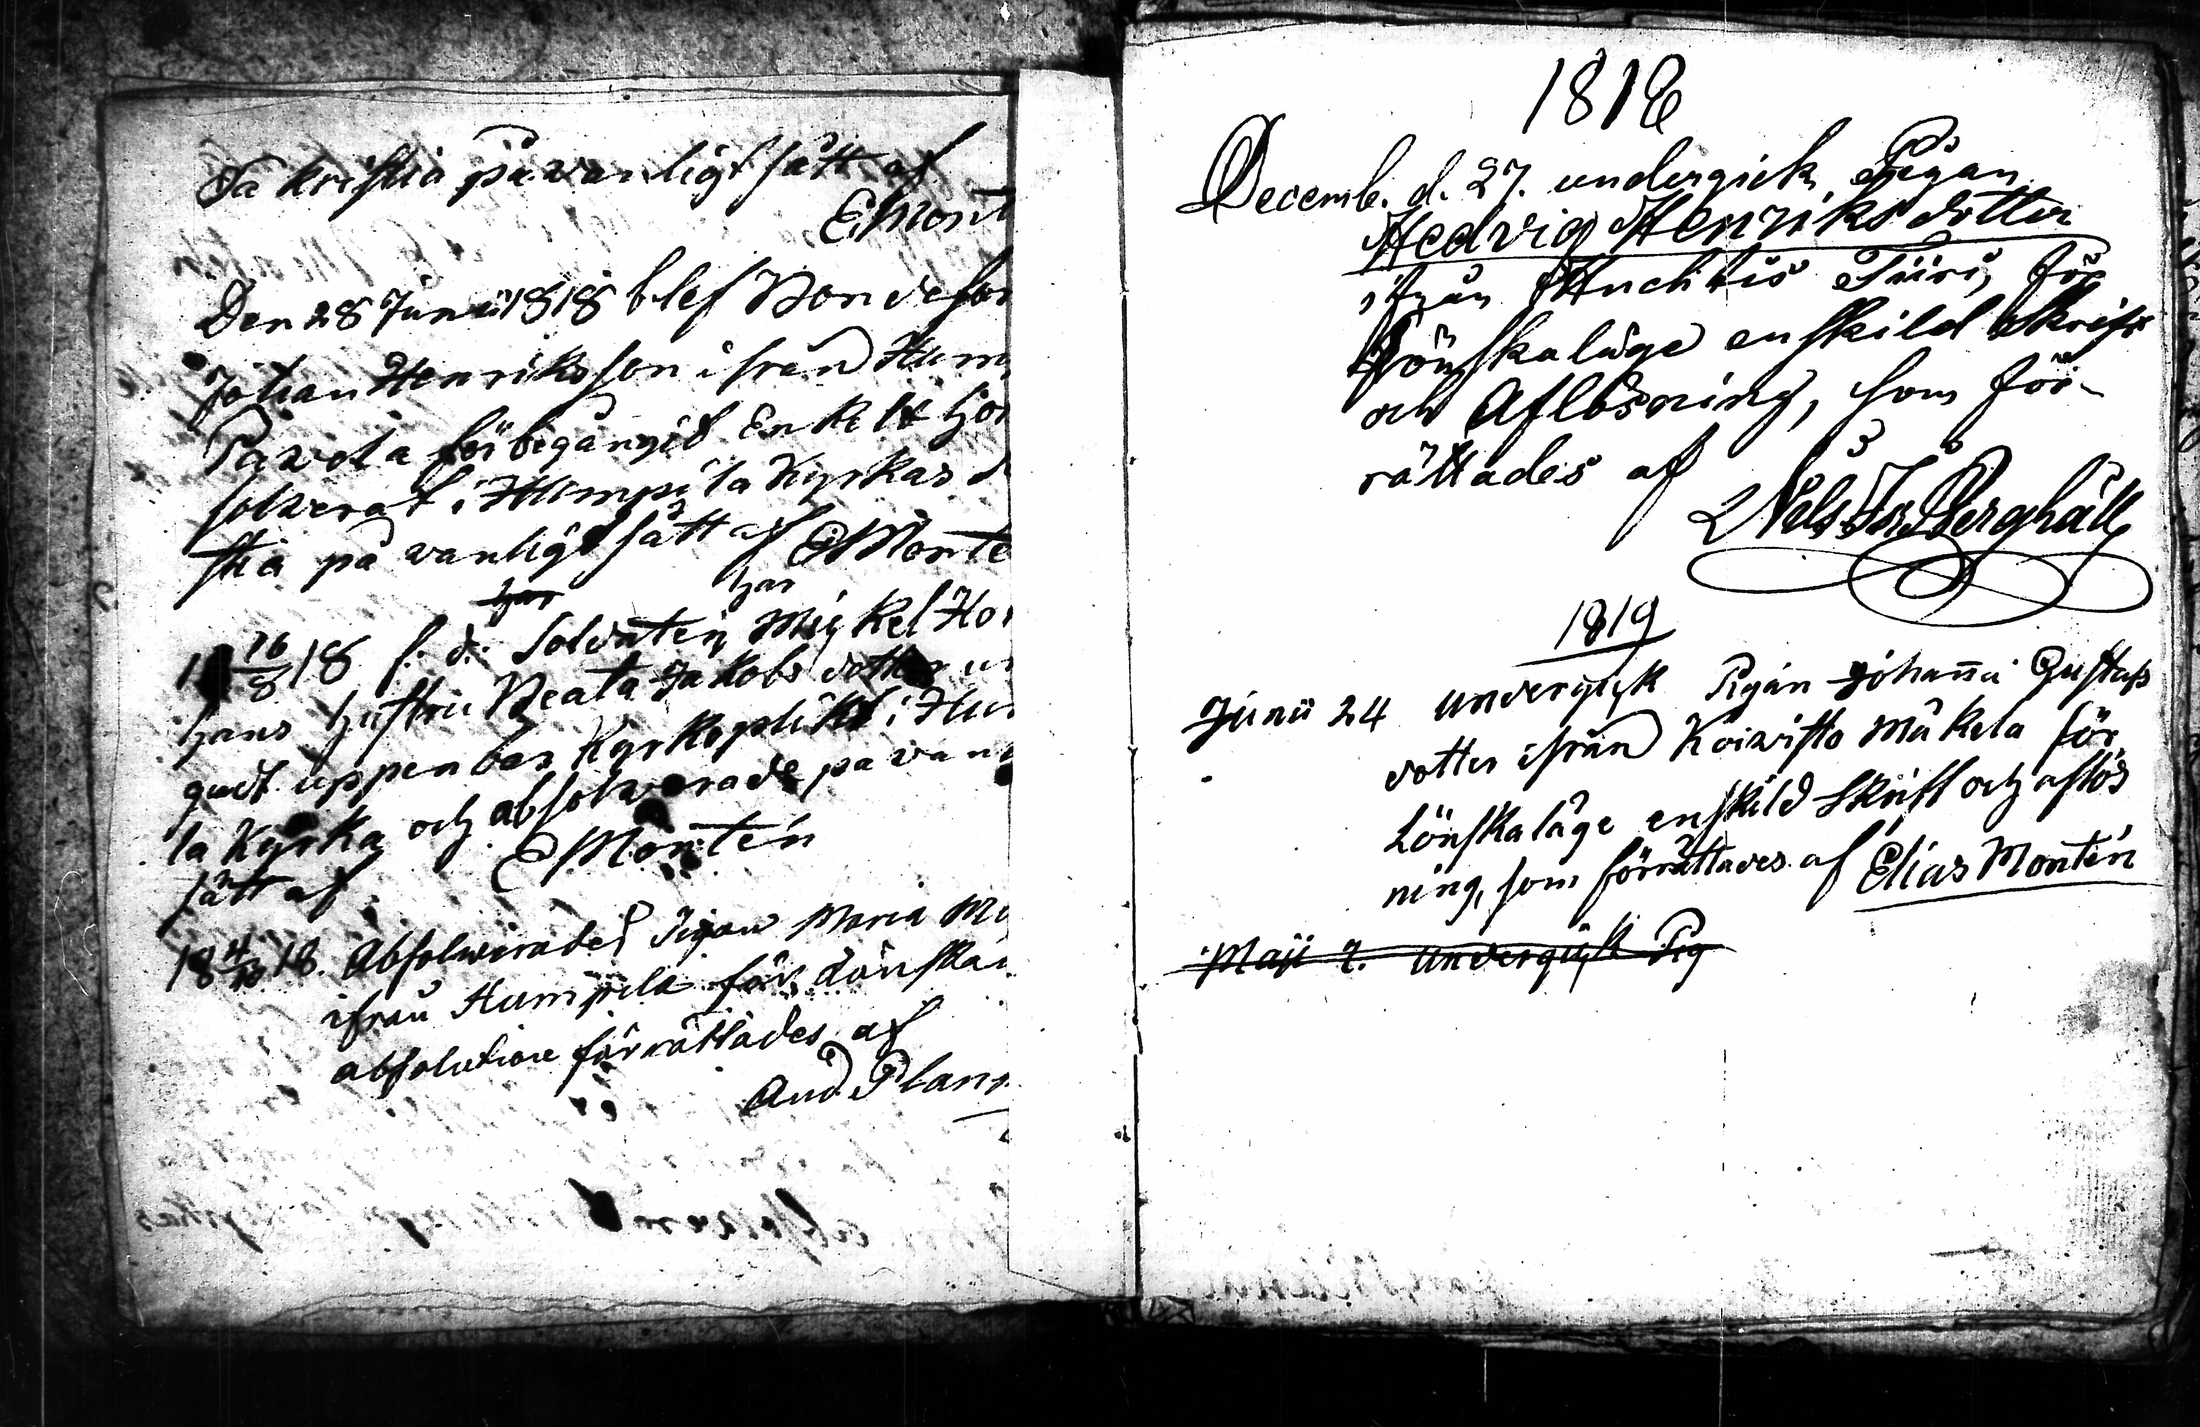 Sa kristia på vanligt sätt af
EMont
Den 28 Junii 1818 blef Bondeson
Johan Henriksson ifrån Hum
Pavola för begångit Enkelt hor
solverat i Humpila Kyrkas
stia på vanligt sätt af EMonte
har har
18 16/8 18 f. d. Soldaten Mickel Ho
hans hustru Beata Jakobsdotter
gått uppenbar Kyrkoplikt i Hum
la Kyrka och absolverade på vanl
sätt af EMontén
18 4/10 18. Absolverades Pigan Maria
ifrån Humpila för Lönska
absolution förrättades af
And Plan
1818
Decemb. d. 27. undergick Pigan
Hedvig Henriksdotter
ifrån Huchtis Türi, för
Lönskaläge enskild Skrift
och Aflösning, som för-
rättades af
Nils Joh Berghäll
1819
Junii 24 undergick Pigan Johanna Gustafs
dotter ifrån Koivisto Mäkelä för
Lönskaläge enskild Skrift och aflös
ning, som förrättades af Elias Montén
Maji 2. undergick Pig